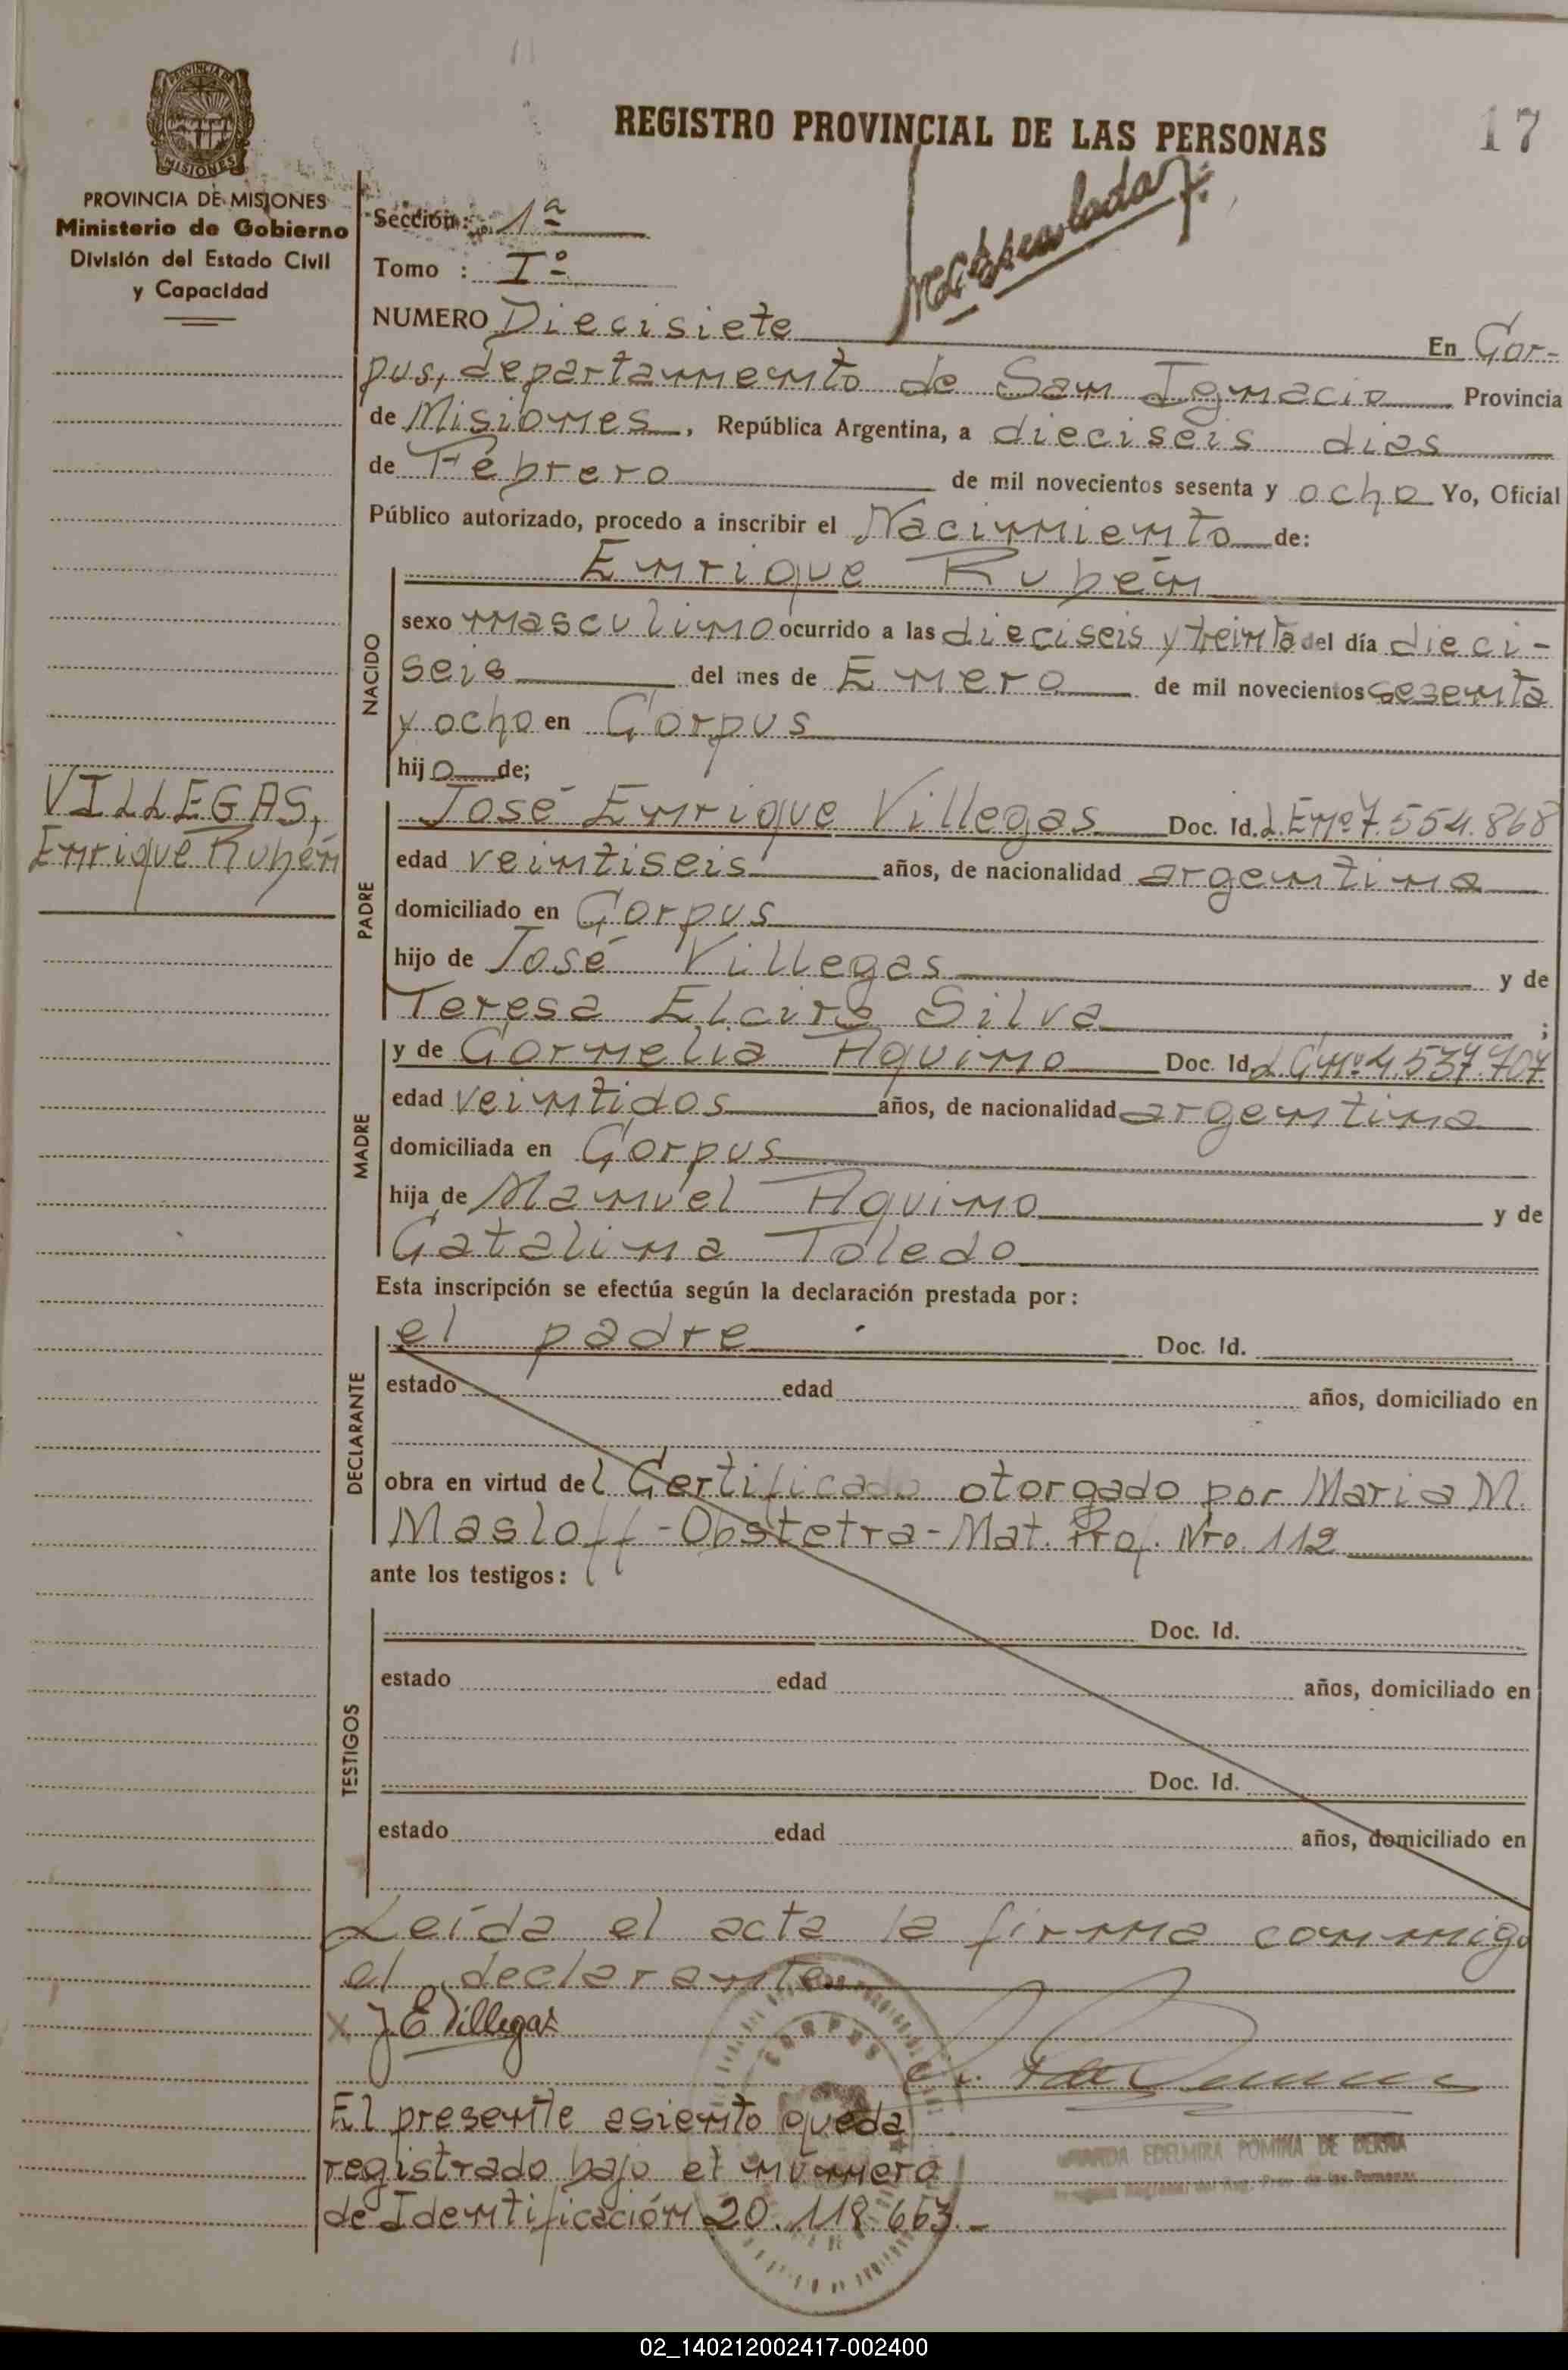 REGISTRO PROVINCIAL DE LAS PERSONAS
17
PROVINCIA DE MISIONES
PROVINCIA DE MISIONES
Ministerio de Gobierno
División del Estado Civil
y Capacidad
Sección: 1ª
Tomo : Iº
NUMERO Diecisiete En Cor-
pus, departamento de San Ignacio Provincia
de Misiones, República Argentina, a dieciseis dias
de Febrero de mil novecientos sesenta y ocho Yo, Oficial
Público autorizado, procedo a inscribir el Nacimiento de:
NACIDO
Enrique Rubén
sexo masculino ocurrido a las dieciseis y treinta del día dieci-
seis del mes de Enero de mil novecientos sesenta
y ocho en Corpus
hijo de;
VILLEGAS,
Enrique Rubén
PADRE
José Enrique Villegas Doc. Id. L.Enº 7.554.868
edad veintiseis años, de nacionalidad argentina
domiciliado en Corpus
hijo de José Villegas y de
Teresa Elcira Silva ;
MADRE
y de Cornelia Aquino Doc. Id. LCnº 4.537.707
edad veintidos años, de nacionalidad argentina
domiciliada en Corpus
hija de Manuel Aquino y de
Catalina Toledo
Esta inscripción se efectúa según la declaración prestada por:
DECLARANTE
el padre Doc. Id.
estado edad años, domiciliado en
obra en virtud del Certificado otorgado por Maria M.
Masloff - Obstetra - Mat. Prof. Nro. 112
ante los testigos:
TESTIGOS
Doc. Id.
estado edad años, domiciliado en
Doc. Id.
estado edad años, domiciliado en
Leída el acta la firma conmigo
el declarante
x J E Villegas
CORPUS
El presente asiento queda
registrado bajo el número
de Identificación 20.118.653.-
EDELMIRA POMINA DE
02_140212002417-002400